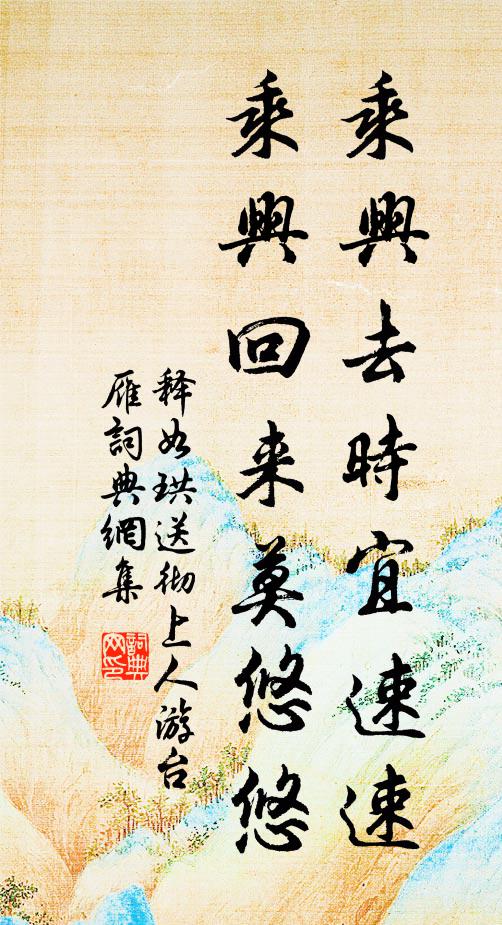 乘興去時宜速速
乘興回来莫悠悠
释如珙送彻上人游台
雁詞典網集
詞典网印